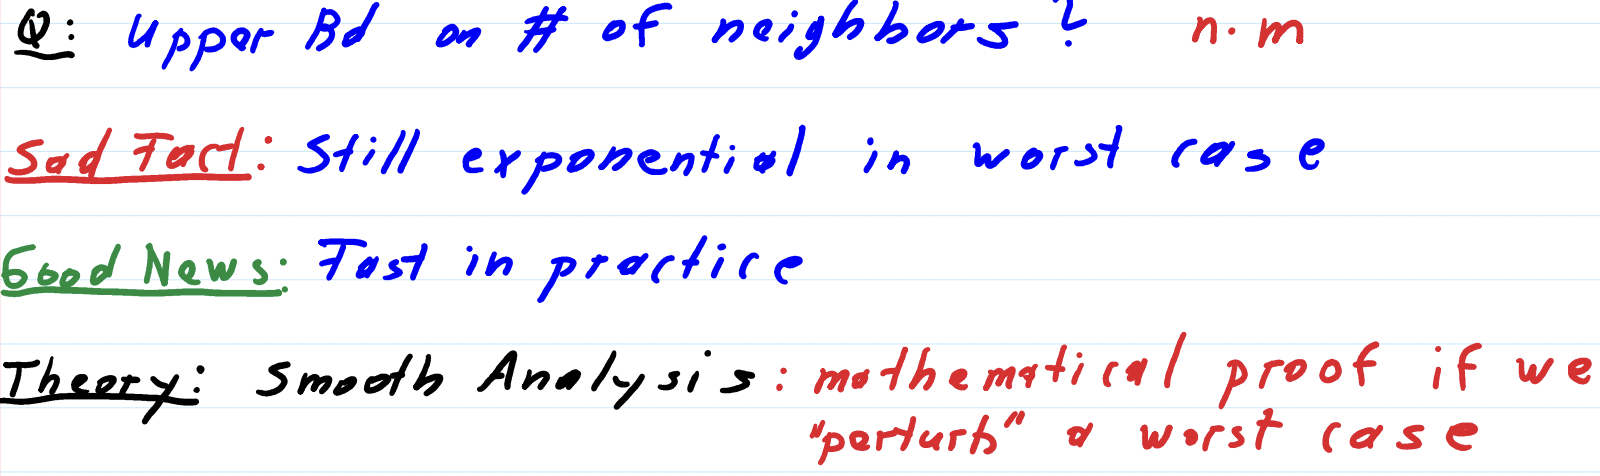 Q: Upper Bd on # of neighbors? n·m
Sad Fact: Still exponential in worst case
Good News: Fast in practice
Theory: Smooth Analysis: mathematical proof if we
"perturb" a worst case